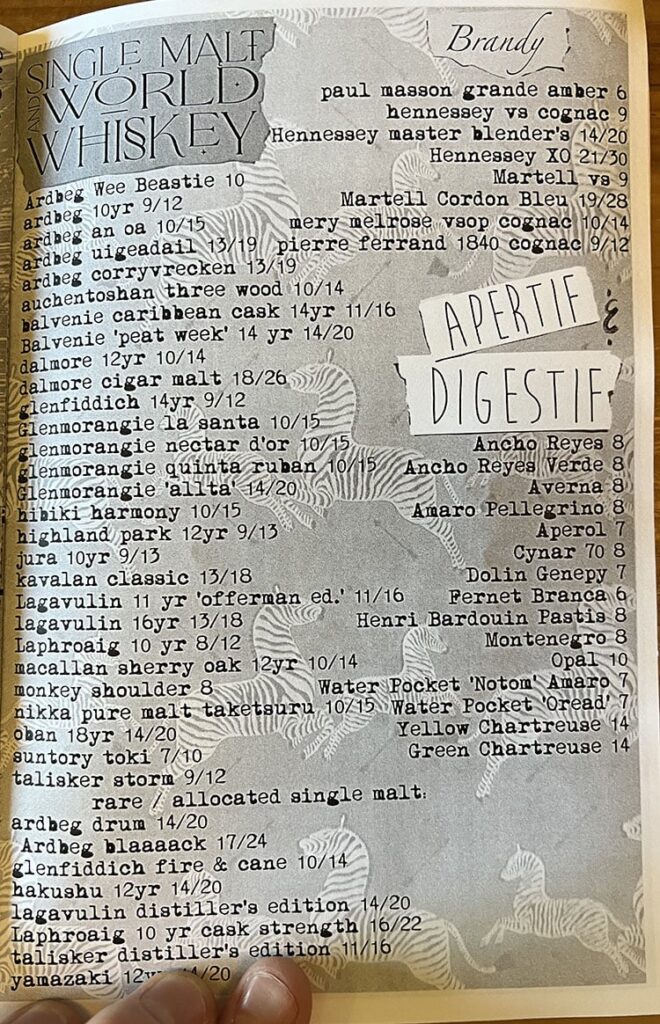 SINGLE MALT
AND WORLD
WHISKEY
Ardbeg Wee Beastie 10
ardbeg 10yr 9/12
ardbeg an oa 10/15
ardbeg uigeadail 13/19
ardbeg corryvrecken 13/19
auchentoshan three wood 10/14
balvenie caribbean cask 14yr 11/16
Balvenie 'peat week' 14 yr 14/20
dalmore 12yr 10/14
dalmore cigar malt 18/26
glenfiddich 14yr 9/12
Glenmorangie la santa 10/15
glenmorangie nectar d'or 10/15
glenmorangie quinta ruban 10/15
Glenmorangie 'allta' 14/20
hibiki harmony 10/15
highland park 12yr 9/13
jura 10yr 9/13
kavalan classic 13/18
Lagavulin 11 yr 'offerman ed.' 11/16
lagavulin 16yr 13/18
Laphroaig 10 yr 8/12
macallan sherry oak 12yr 10/14
monkey shoulder 8
nikka pure malt taketsuru 10/15
oban 18yr 14/20
suntory toki 7/10
talisker storm 9/12
rare / allocated single malt:
ardbeg drum 14/20
Ardbeg blaaaack 17/24
glenfiddich fire & cane 10/14
hakushu 12yr 14/20
lagavulin distiller's edition 14/20
Laphroaig 10 yr cask strength 16/22
talisker distiller's edition 11/16
yamazaki /20
Brandy
paul masson grande amber 6
hennessey vs cognac 9
Hennessey master blender's 14/20
Hennessey XO 21/30
Martell vs 9
Martell Cordon Bleu 19/28
mery melrose vsop cognac 10/14
pierre ferrand 1840 cognac 9/12
APERTIF &
DIGESTIF
Ancho Reyes 8
Ancho Reyes Verde 8
Averna 8
Amaro Pellegrino 8
Aperol 7
Cynar 70 8
Dolin Genepy 7
Fernet Branca 6
Henri Bardouin Pastis 8
Montenegro 8
Opal 10
Water Pocket 'Notom' Amaro 7
Water Pocket 'Oread' 7
Yellow Chartreuse 14
Green Chartreuse 14